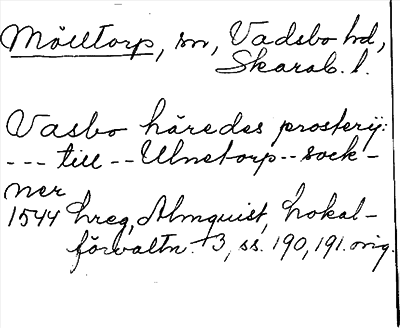 Mölltorp, sn, Vadsbo hd,
Skarab. l.
Vasbo häredes prosterij:
--- till -- Ulnetorp -- sock-
ner
1544 hreg, Almquist, Lokal-
förvaltn. 3, ss. 190, 191. orig.